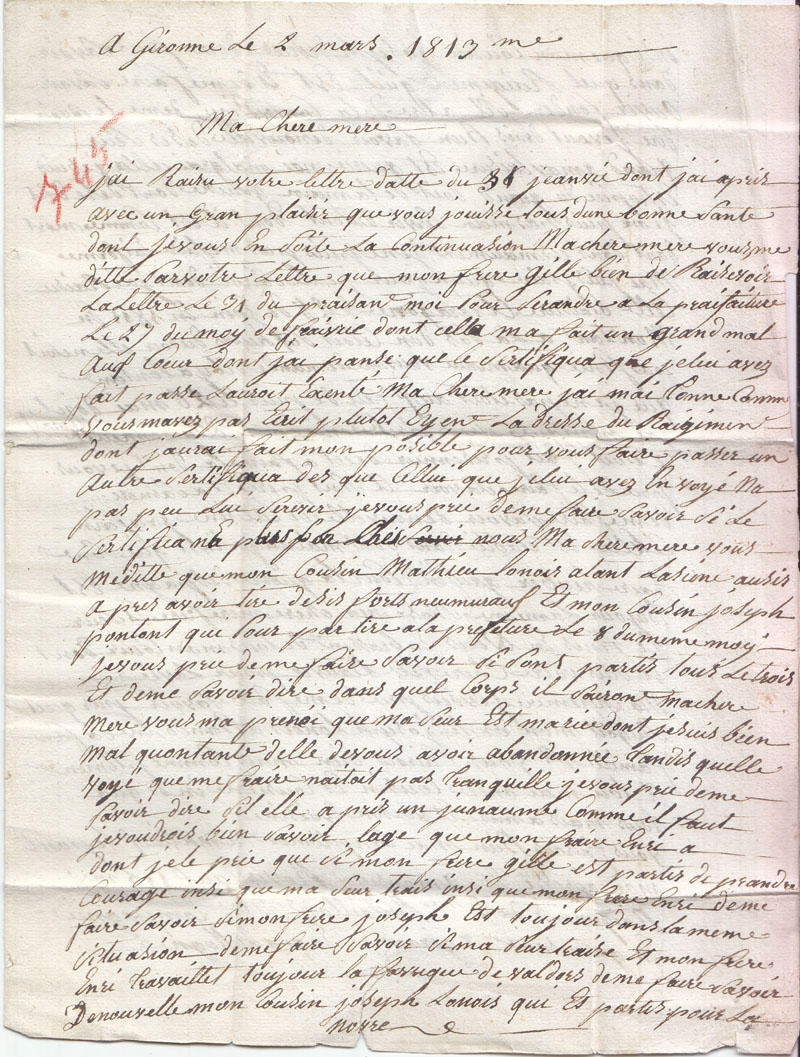 A Gironne Le 2 mars. 1813 me
Ma Chere mere
745
jai Raisu votre lettre datte du 31 jeanvié dont jai apris
avec un gran plaisir que vous jouisse tous dune bonne Sante
dont je vous En Soite La Continuasion Ma chere mere vous me
ditte Par votre Lettre que mon frere gille bien de Raisevoir
La Lettre Le 31 du praisan moi Pour Serandre a La praifaiture
Le 27 du moÿ de faivrié dont cella ma fait un grand mal
Auf Coeur dont jai panse que le Sertifiqua que je lui avez
fait passe Lauroit Exenté Ma Chere mere jai mai tonne Comme
vous mavez pas Ecrit plutot Eyen La dresse du Raigimen
dont jaurai fait mon posible pour vous faire passer un
Autre Sertifiqua des que Cellui que je lui avez En voyé Na
pas peu Lui Servir je vous prie deme faire Savoir Sé Le
Sertifica nous Ma chere mere vous
me ditte que mon Cousin Mathieu Lonois alant La sione ausis
a pres avoir tire desis forts neumurauf Et mon Cousin joseph
pontont qui Pour partire a la prefeture Le 8 du meme moÿ
je vous prie deme faire Savoir Si Sont partis tous Le trois
Et deme Savoir dire dans quel Corps il Sairon ma chere
Mere vous ma prenéi que ma Seur Est marie dont je suis bien
Mal quontant delle devous avoir abandonnée tandis quelle
voyé que me fraire naitoit pas tranquille je vous prie deme
Savoir dire Sil elle a pris un junaume Comme il faut
je voudrois bien Savoir lage que mon fraire Enri a
dont je le prie que Si mon frere gille est partis de prandre
Courage insi que ma Seur trais insi que mon frere Enri deme
faire Savoir Si mon frire joseph Est toujour dans la meme
Situasion deme faire Savoir Si ma Seur traise Et mon frere
Enri travaillet toujour la favrique de valdors deme faire Savoir
De nouvelle mon Cousin joseph Lonois que Et partis pour La
norre